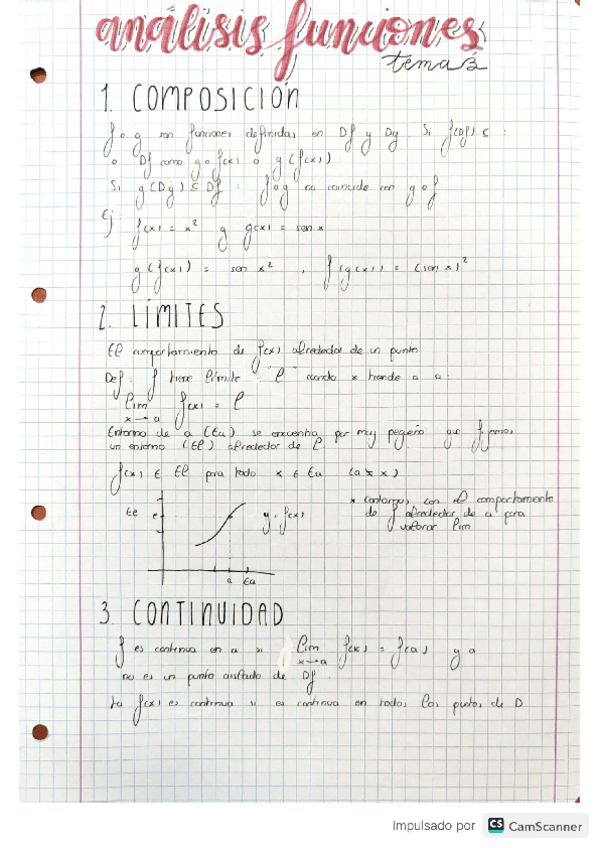 análisis funciones
tema 3
1. COMPOSICIÓN
f o g son funciones definidas en Df y Dg. Si f(Df) ⊆ :
o Df como g o f(x) o g(f(x))
Si g(Dg) ⊆ Df : f o g no coincide con g o f
Ej: f(x) = x² y g(x) = sen x
g(f(x)) = sen x² , f(g(x)) = (sen x)²
2. LÍMITES
El comportamiento de f(x) alrededor de un punto
Def: f tiene límite "l" cuando x tiende a a:
lim f(x) = l
x→a
Entorno de a (Ea) se encuentra por muy pequeño que fijemos
un entorno (El) alrededor de l
f(x) ∈ El para todo x ∈ Ea (a ≠ x)
* contamos con el comportamiento
de f alrededor de a para
valorar lim
El l y = f(x)
a Ea
3. CONTINUIDAD
f es continua en a si lim f(x) = f(a) y a
x→a
no es un punto aislado de Df
La f(x) es continua si es continua en todos los puntos de D
Impulsado por CS CamScanner